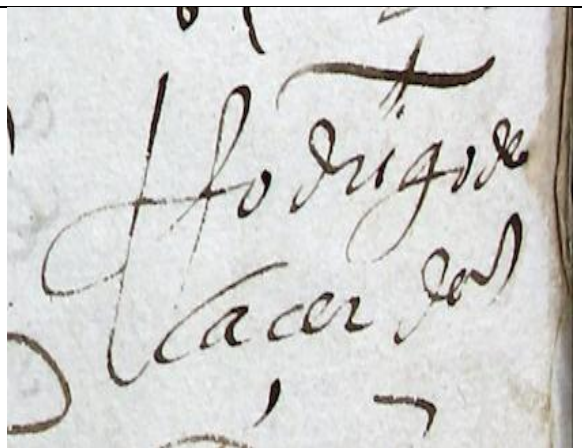 Rodrigo de
Cacer des